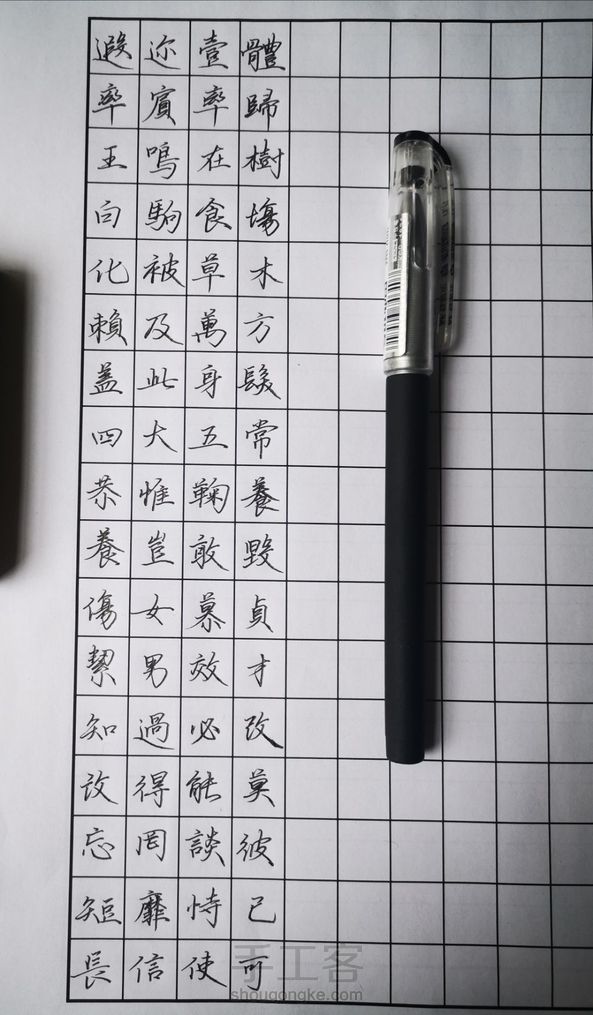 遐迩壹體
率賓率歸
王鳴在樹
白駒食塲
化被草木
賴及萬方
蓋此身髮
四大五常
恭惟鞠養
養豈敢毀
傷女慕貞
絜男效才
知過必改
改得能莫
忘罔談彼
短靡恃己
長信使可
手工客
shougongke.com